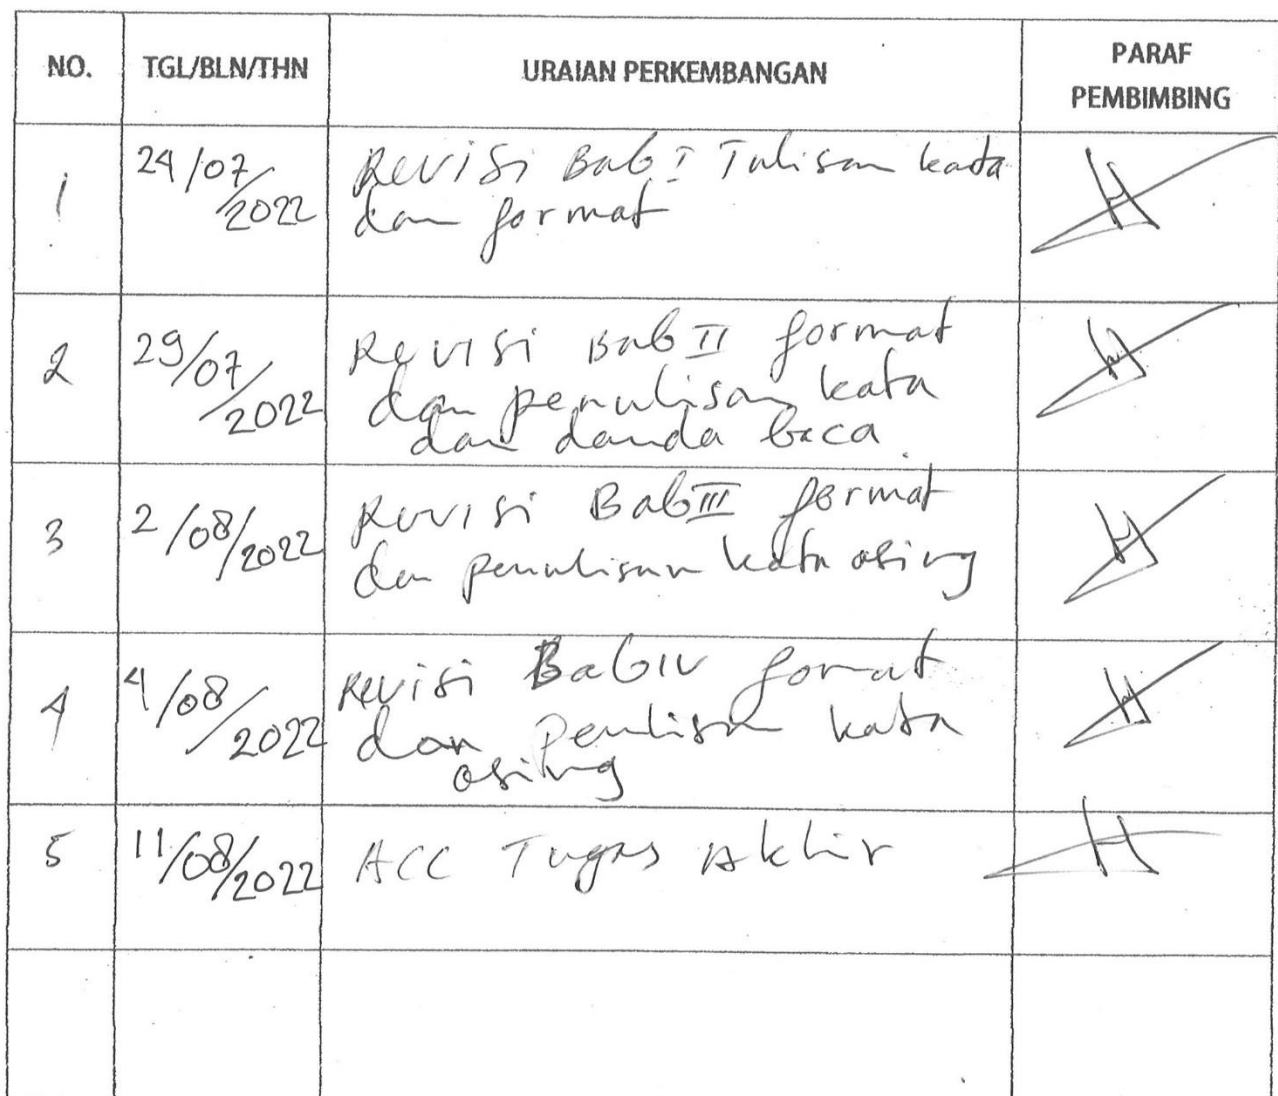 NO. TGL/BLN/THN URAIAN PERKEMBANGAN PARAF
PEMBIMBING
1 24/07/2022 Revisi Bab I Tulisan kata
dan format
2 29/07/2022 Revisi Bab II format
dan penulisan kata
dan danda baca
3 2/08/2022 Revisi Bab III format
dan penulisan kata asing
4 4/08/2022 Revisi Bab IV format
dan penulisan kata
asing
5 11/08/2022 ACC Tugas Akhir